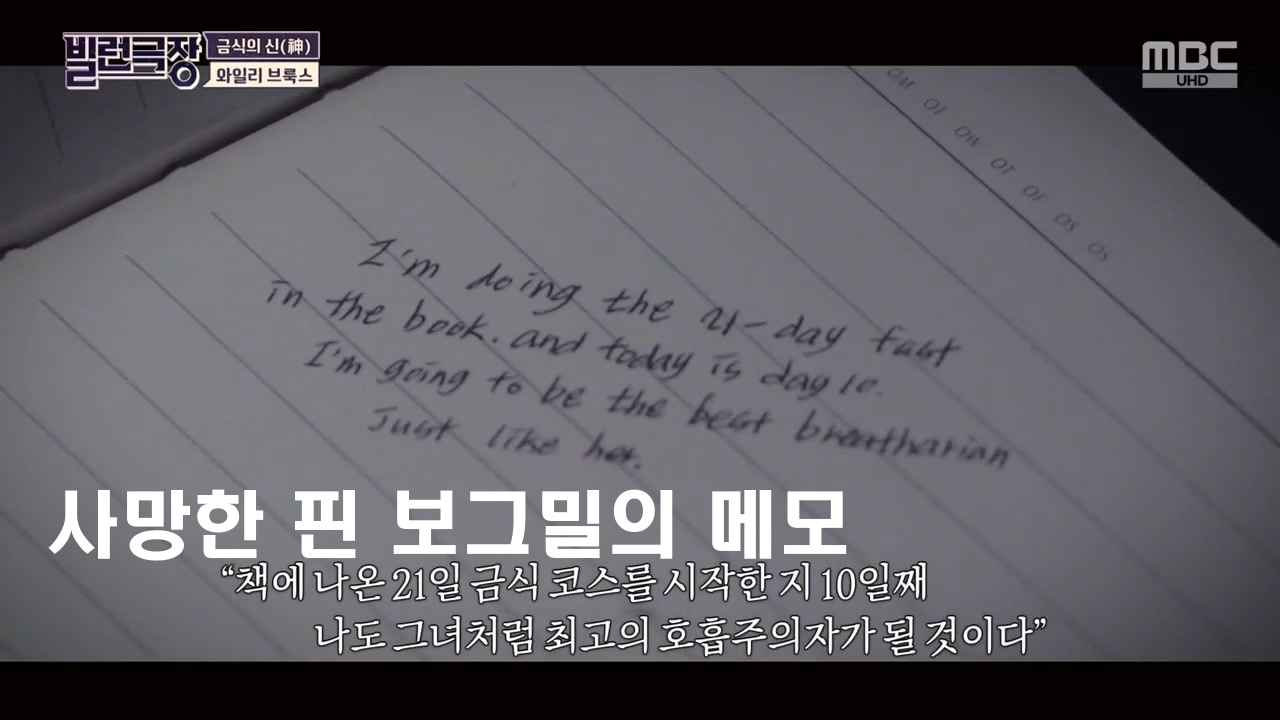 빌런극장
금식의 신(神)
와일리 브룩스
MBC
UHD
I'm doing the 21-day fast
in the book. and today is day 10.
I'm going to be the best breatharian
Just like her.
사망한 핀 보그밀의 메모
“책에 나온 21일 금식 코스를 시작한 지 10일째
나도 그녀처럼 최고의 호흡주의자가 될 것이다”